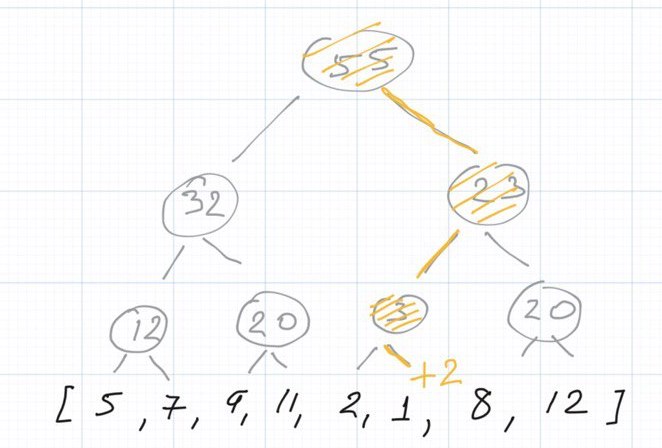 55
32 23
12 20 3 20
+2
[ 5 , 7, 9, 11, 2, 1, 8, 12 ]